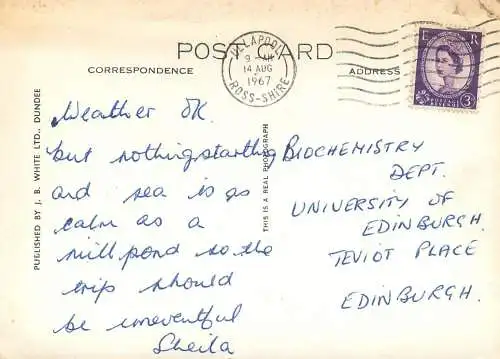 POST CARD
CORRESPONDENCE
ADDRESS
ULLAPOOL
9 - AM
14 AUG
1967
ROSS-SHIRE
E R
POSTAGE REVENUE
3D
PUBLISHED BY J. B. WHITE LTD., DUNDEE
THIS IS A REAL PHOTOGRAPH
Weather OK.
but nothing startling
and sea is as
calm as a
mill pond so the
trip should
be uneventful
Sheila
BIOCHEMISTRY
DEPT.
UNIVERSITY OF
EDINBURGH.
TEVIOT PLACE
EDINBURGH.